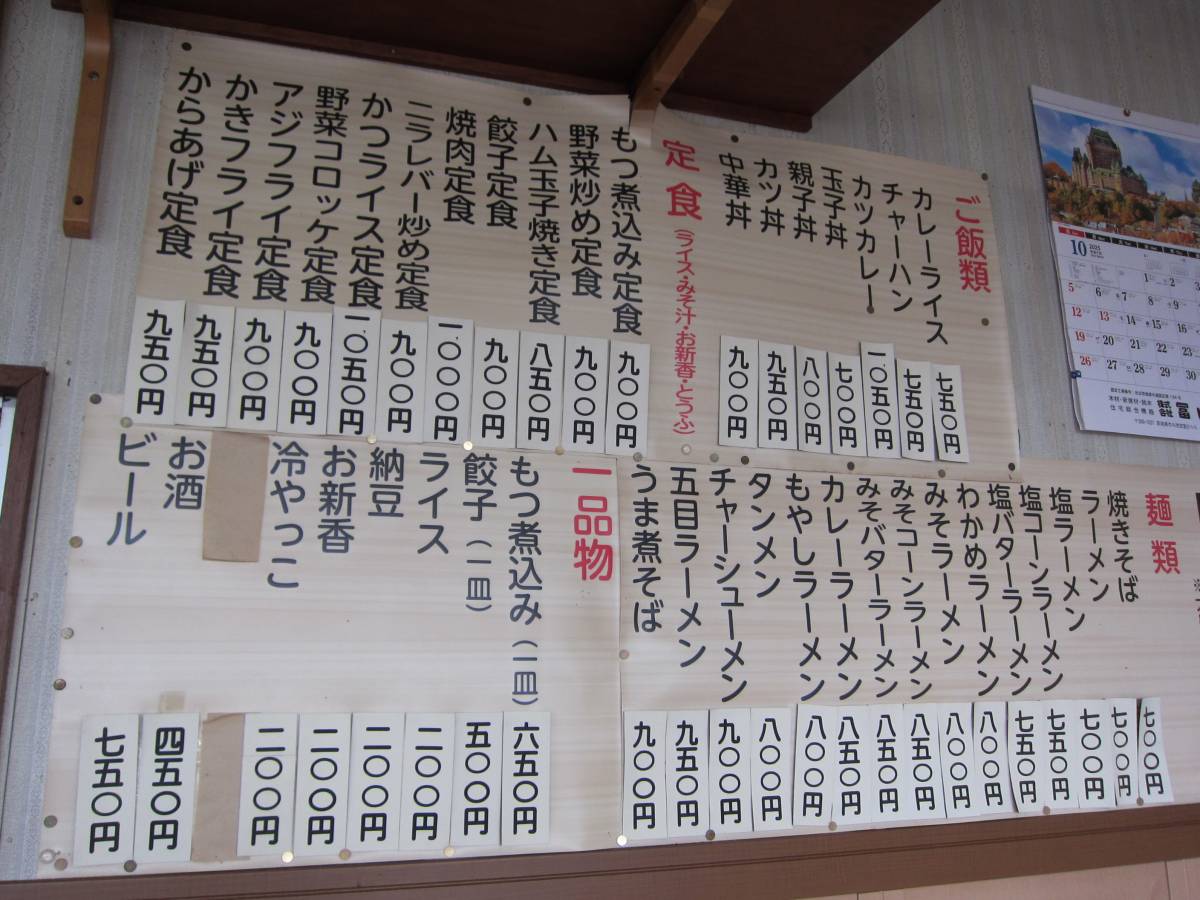 ご飯類
カレーライス 七五〇円
チャーハン 七五〇円
カツカレー 一、〇五〇円
玉子丼 七〇〇円
親子丼 八〇〇円
カツ丼 九五〇円
中華丼 九〇〇円
定食(ライス・みそ汁・お新香・とうふ)
もつ煮込み定食 九〇〇円
野菜炒め定食 九〇〇円
ハム玉子焼き定食 八五〇円
餃子定食 九〇〇円
焼肉定食 一、〇〇〇円
ニラレバー炒め定食 九〇〇円
かつライス定食 一、〇五〇円
野菜コロッケ定食 九〇〇円
アジフライ定食 九〇〇円
かきフライ定食 九五〇円
からあげ定食 九五〇円
麺類
焼きそば 七〇〇円
ラーメン 七〇〇円
塩ラーメン 七〇〇円
塩コーンラーメン 七五〇円
塩バターラーメン 七五〇円
わかめラーメン 八〇〇円
みそラーメン 八〇〇円
みそコーンラーメン 八五〇円
みそバターラーメン 八五〇円
カレーラーメン 八五〇円
もやしラーメン 八〇〇円
タンメン 八〇〇円
チャーシューメン 九〇〇円
五目ラーメン 九五〇円
うま煮そば 九〇〇円
一品物
もつ煮込み(一皿) 六五〇円
餃子(一皿) 五〇〇円
ライス 二〇〇円
納豆 二〇〇円
お新香 二〇〇円
冷やっこ 二〇〇円
お酒 四五〇円
ビール 七五〇円
10 2025
1 2 3
5 6 7 8 9 10
12 13 14 15 16 17
19 20 21 22 23 24
26 27 28 29 30 31